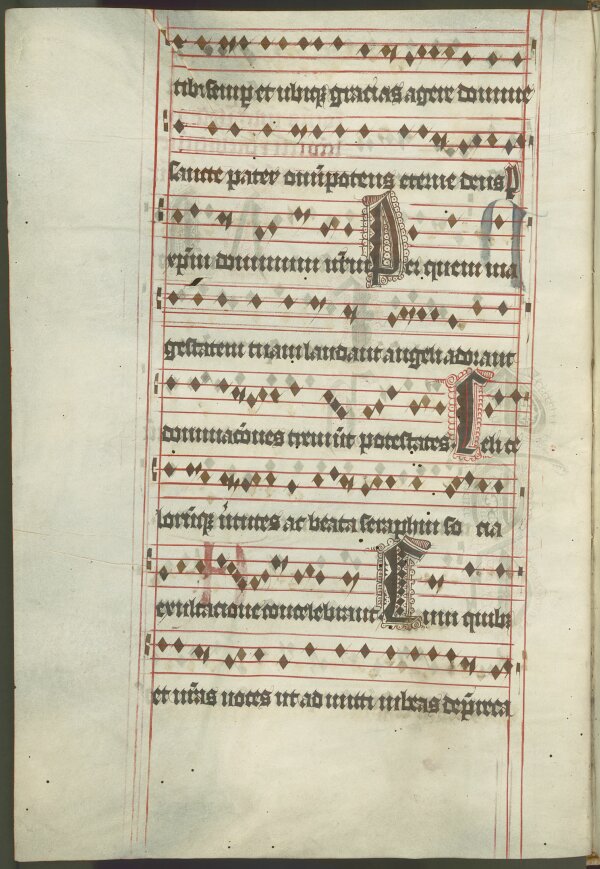 tibi semp et ubiq gracias agere domine
sancte pater omipotens eterne deus P
er xpm dominum nrm Per quem ma
gestatem tuam laudant angeli adorant
dominacoes tremut potestates Celi ce
lorumq virtutes ac beata seraphin so cia
exultacione concelebrant Cum quibz
et nras voces ut ad mitti iubeas depreca